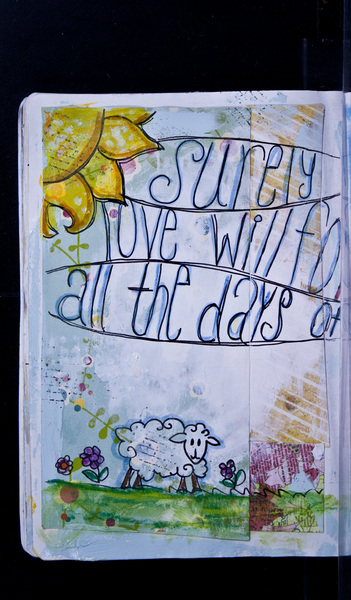 surely
love will fo
all the days of